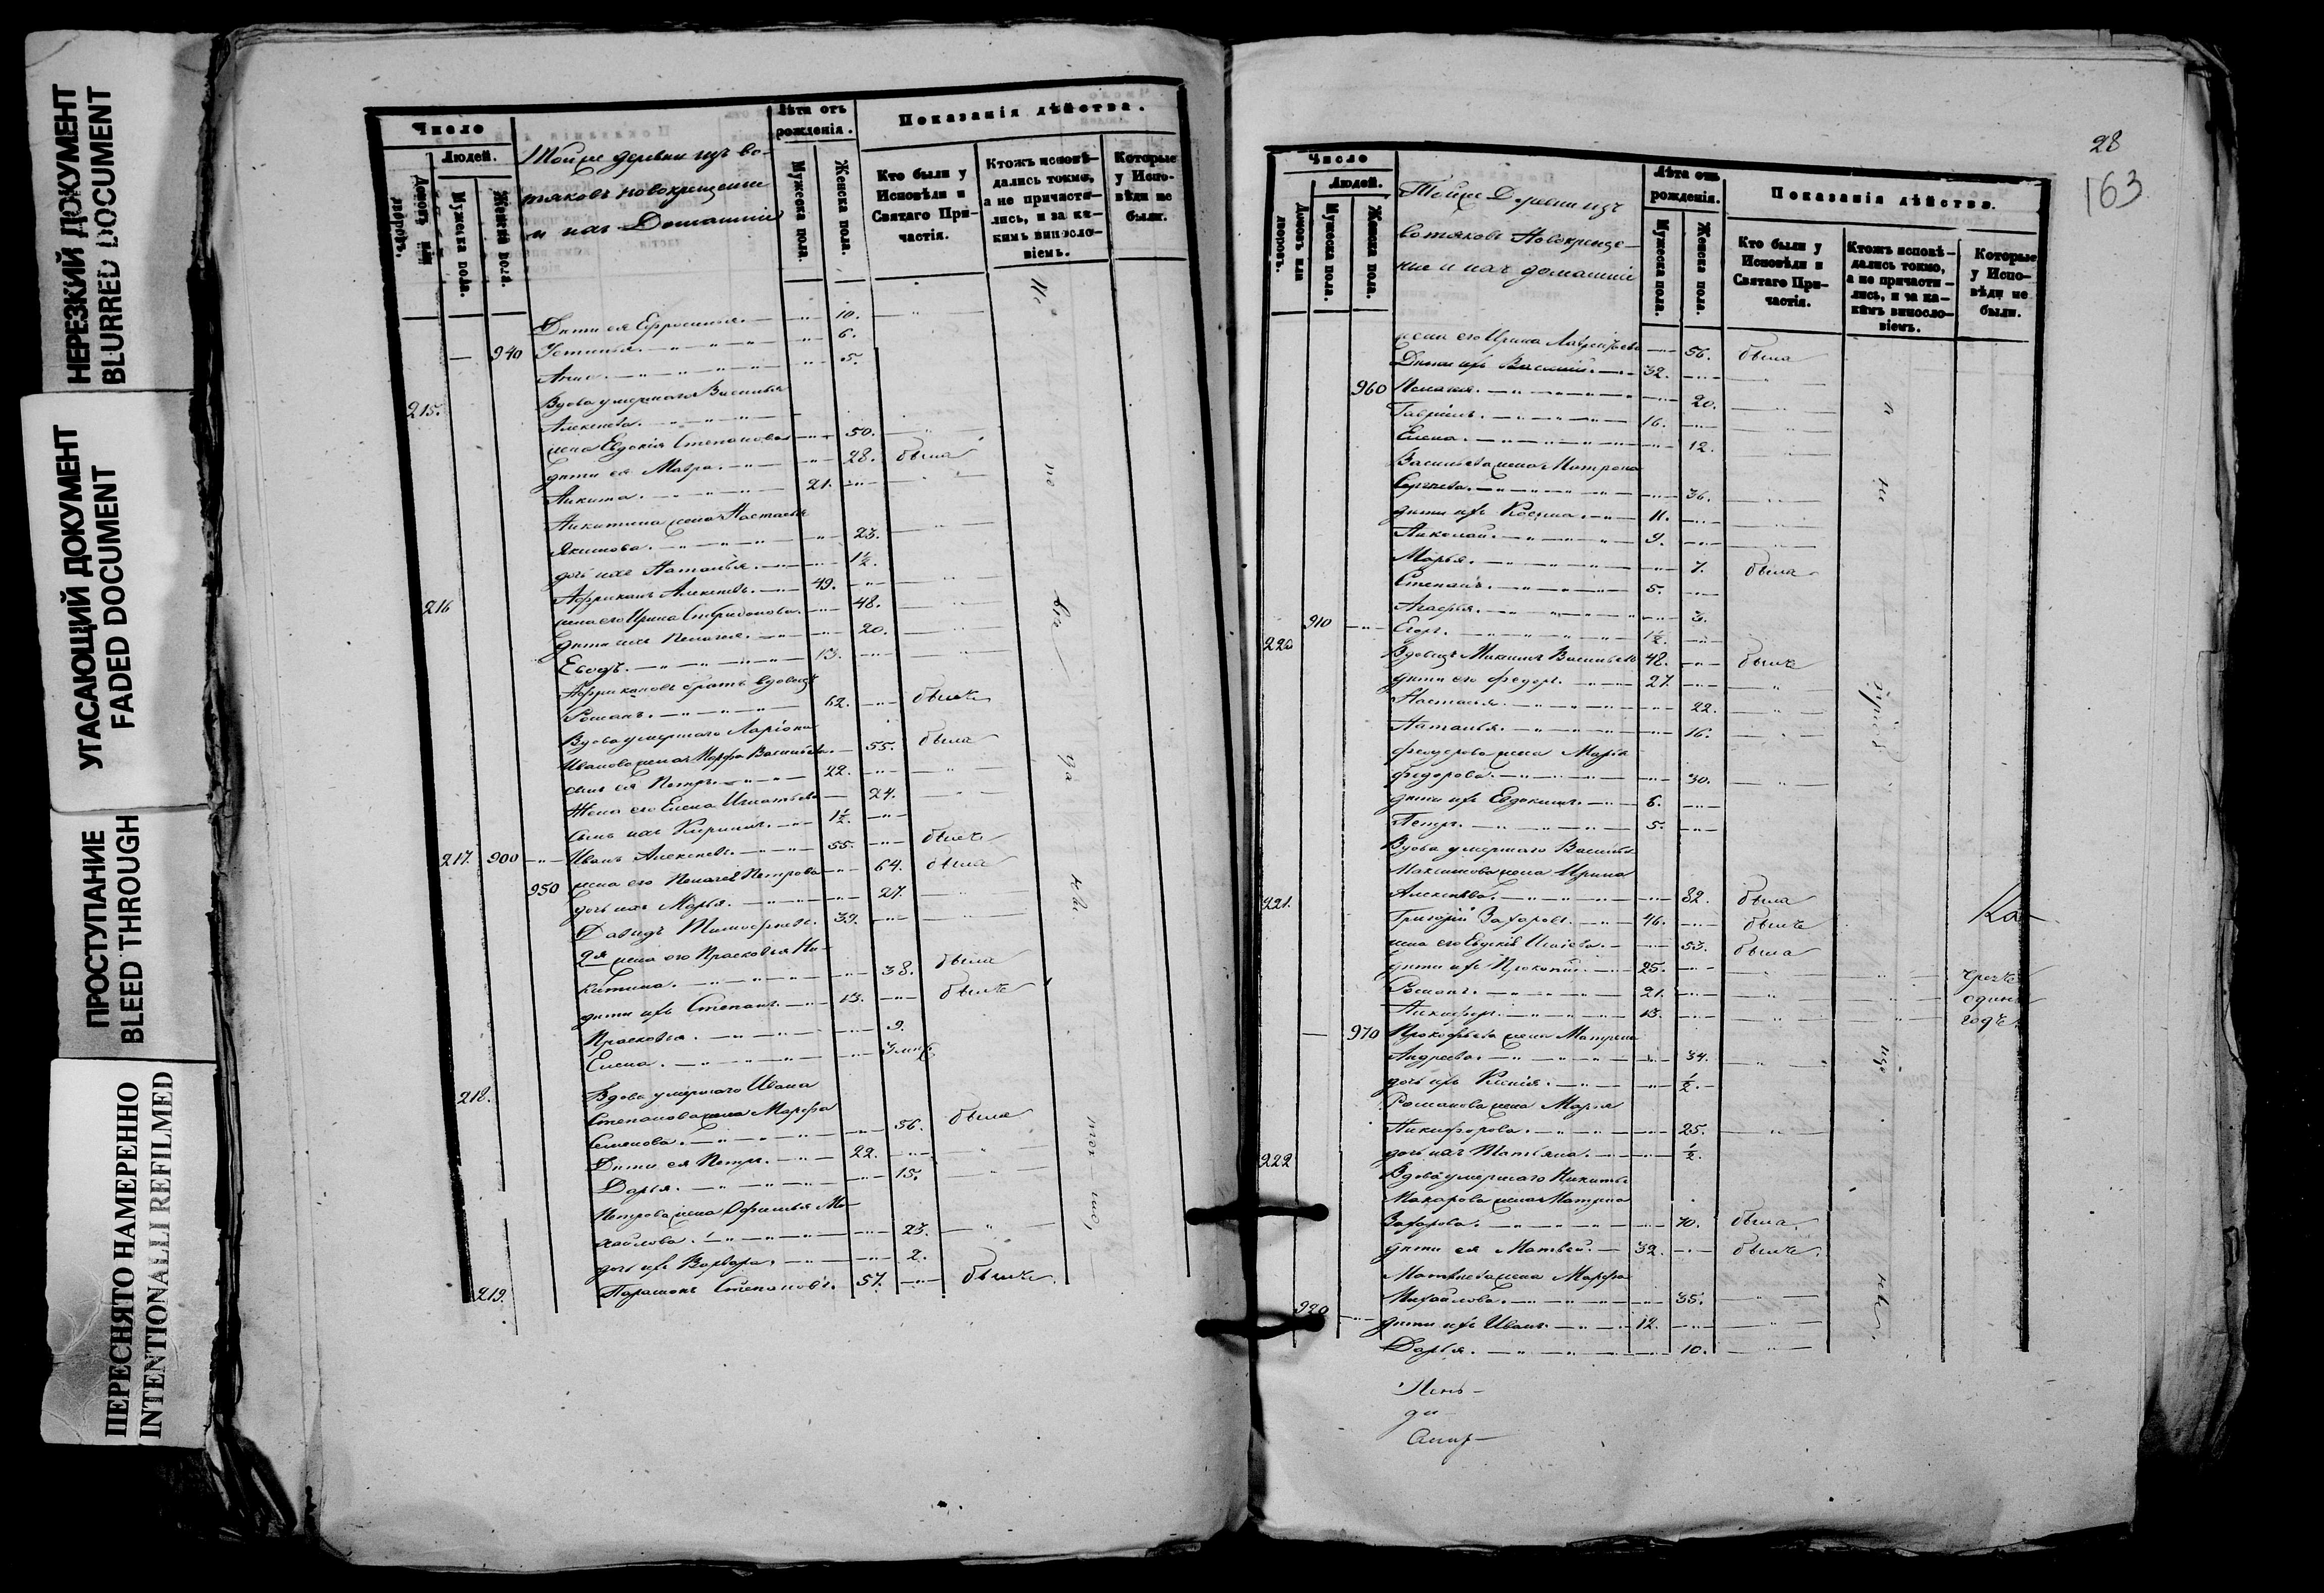 НЕРЕЗКИЙ ДОКУМЕНТ
BLURRED DOCUMENT
УГАСАЮЩИЙ ДОКУМЕНТ
FADED DOCUMENT
ПРОСТУПАНИЕ
BLEED THROUGH
ПЕРЕСНЯТО НАМЕРЕННО
INTENTIONALLI REFILMED
Число
Людей.
Домовъ или дворовъ.
Мужеска пола.
Женска пола.
Тойже деревни изъ во-
тяковъ новокрещеные
и ихъ Домашніе
Лѣта отъ рожденія.
Мужеска пола.
Женска пола.
Показанія дѣйства.
Кто были у Исповѣди и Святаго Причастія.
Ктожъ исповѣ-
дались токмо,
а не причасти-
лись, и за ка-
кимъ виносло-
віемъ.
Которые
у Испо-
вѣди не
были.
Дѣти ея Ефросинья. 10.
940 Устинья. 6.
Анна 5.
215. Вдова умершаго Василья
Алексѣева.
жена Евдокія Степанова 50.
дѣти ея Мавра. 28. была
Никита. 21.
Никитина жена Настасья
Якимова. 23.
дочь ихъ Наталья. 1½.
216 Африканъ Алексѣевъ. 49.
жена его Ирина Спиридонова. 48.
дѣти ихъ Пелагея. 20.
13.
Африкановъ братъ вдовецъ
Романъ. 62. былъ
Вдова умершаго Ларіона
Иванова жена Марфа Васильева. 55. была
сынъ ея Петръ. 22.
Жена его Елена Игнатьева 24.
Сынъ ихъ 1½.
217. 900 Иванъ Алексѣевъ. 55. былъ
950 жена его Пелагея Петрова 64. была
дочь ихъ Марья. 27.
Давидъ Тимофеевъ. 39.
2я жена его Прасковья Ни-
китина. 38. была
дѣти ихъ Степанъ. 13. былъ
Прасковья. 9.
Елена. 3
218. Вдова умершаго Ивана
Степанова жена Марфа
Семенова. 56. была
Дѣти ея Петръ. 22.
Дарья. 15.
Петрова жена Офимья Ми-
хайлова. 23.
дочь ихъ Варвара. 2.
219. Парамонъ Степановъ. 57. былъ
28
163
Число
Людей.
Домовъ или дворовъ.
Мужеска пола.
Женска пола.
Тойже Деревни изъ
вотяковъ Новокреще-
ные и ихъ домашніе
Лѣта отъ рожденія.
Мужеска пола.
Женска пола.
Показанія дѣйства.
Кто были у
Исповѣди и
Святаго При-
частія.
Ктожъ исповѣ-
дались токмо,
а не причасти-
лись, и за ка-
кимъ виносло-
віемъ.
Которые
у Испо-
вѣди не
были.
жена его Ирина Лаврентьева 56. была
Дѣти ихъ Василій. 32.
960 Пелагея. 20.
Гавріилъ. 16.
Елена. 12.
Васильева жена Матрена
Сергѣева. 36.
дѣти ихъ Косьма. 11.
Николай. 9.
Марья. 7. была
Степанъ. 5.
Агафья. 3.
910 Егоръ. 1½.
220 Вдовецъ Максимъ Васильевъ 48. былъ
дѣти его Федоръ. 27.
Настасья. 22.
Наталья. 16.
Федорова жена Марья
Федорова. 30.
дѣти ихъ Евдокимъ. 6.
Петръ. 5.
Вдова умершаго Василья
Максимова жена Ирина
Алексѣева. 82. была
221. Григорій Захаровъ. 46. былъ
жена его Евдокія Исаіева. 53. была
дѣти ихъ Прокопій. 25.
Романъ. 21.
Никифоръ. 13.
чрезъ
одинъ
годъ.
970 Прокофьева жена Матрена
Андреева. 34.
дочь ихъ Ксенія. ½.
Романова жена Марья
Никифорова. 25.
дочь ихъ Татьяна. ½.
222 Вдова умершаго Никиты
Макарова жена Матрена
Захарова. 70. была
дѣти ея Матвѣй. 32. былъ.
Матвѣева жена Марфа
Михайлова. 35.
920 дѣти ихъ Иванъ. 12.
Дарья. 10.